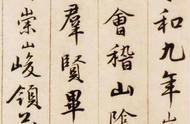 和九年
會稽山陰
羣賢畢
崇山峻領